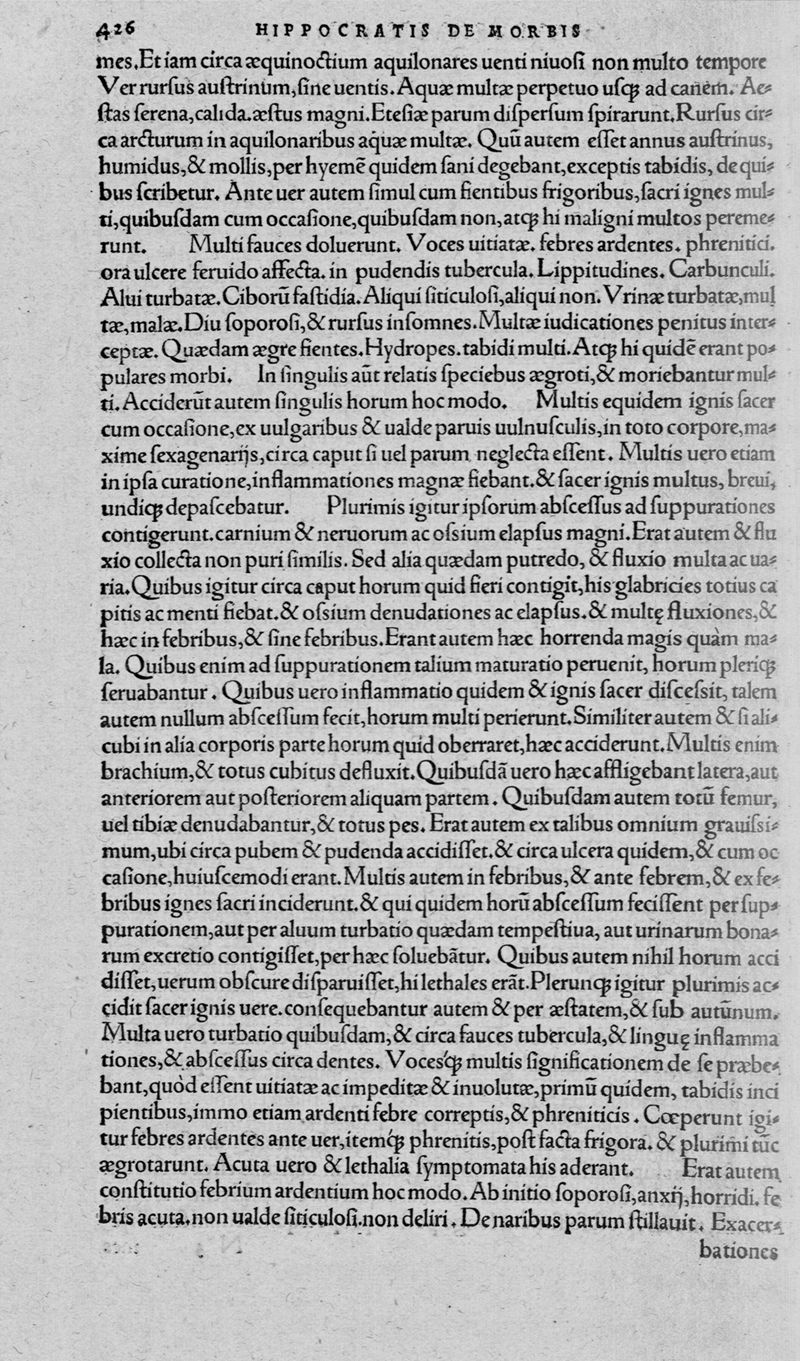 426 HIPPOCRATIS DE MORBIS
mes.Et iam circa æquinoctium aquilonares uenti niuosi non multo tempore
Ver rursus austrinum,sine uentis.Aquæ multæ perpetuo usqꝫ ad canem. Ae⸗
stas serena,calida.æstus magni.Etesiæ parum dispersum spirarunt.Rursus cir⸗
ca arcturum in aquilonaribus aquæ multæ. Quũ autem esset annus austrinus,
humidus,& mollis,per hyemẽ quidem sani degebant,exceptis tabidis, de qui⸗
bus scribetur. Ante uer autem simul cum fientibus frigoribus,sacri ignes mul⸗
ti,quibusdam cum occasione,quibusdam non,atqꝫ hi maligni multos pereme⸗
runt. Multi fauces doluerunt. Voces uitiatæ. febres ardentes. phrenitici.
ora ulcere feruido affecta. in pudendis tubercula. Lippitudines. Carbunculi.
Alui turbatæ.Ciborũ fastidia. Aliqui siticulosi,aliqui non. Vrinæ turbatæ,mul
tæ,malæ.Diu soporosi,& rursus insomnes.Multæ iudicationes penitus inter⸗
ceptæ. Quædam ægre fientes.Hydropes.tabidi multi.Atqꝫ hi quidẽ erant po⸗
pulares morbi. In singulis aũt relatis speciebus ægroti,& moriebantur mul⸗
ti. Acciderũt autem singulis horum hoc modo. Multis equidem ignis sacer
cum occasione,ex uulgaribus & ualde paruis uulnusculis,in toto corpore,ma⸗
xime sexagenarijs,circa caput si uel parum neglecta essent. Multis uero etiam
in ipsa curatione,inflammationes magnæ fiebant.& sacer ignis multus, breui,
undiqꝫ depascebatur. Plurimis igitur ipsorum abscessus ad suppurationes
contigerunt.carnium & neruorum ac ossium elapsus magni.Erat autem & flu
xio collecta non puri similis. Sed alia quædam putredo, & fluxio multa ac ua⸗
ria.Quibus igitur circa caput horum quid fieri contigit,his glabricies totius ca
pitis ac menti fiebat.& ossium denudationes ac elapsus.& multę fluxiones,&
hæc in febribus,& sine febribus.Erant autem hæc horrenda magis quàm ma⸗
la. Quibus enim ad suppurationem talium maturatio peruenit, horum pleriqꝫ
seruabantur. Quibus uero inflammatio quidem & ignis sacer discessit, talem
autem nullum abscessum fecit,horum multi perierunt.Similiter autem & si ali⸗
cubi in alia corporis parte horum quid oberraret,hæc acciderunt.Multis enim
brachium,& totus cubitus defluxit.Quibusdã uero hæc affligebant latera,aut
anteriorem aut posteriorem aliquam partem. Quibusdam autem totũ femur,
uel tibiæ denudabantur,& totus pes. Erat autem ex talibus omnium grauissi⸗
mum,ubi circa pubem & pudenda accidisset.& circa ulcera quidem,& cum oc
casione,huiuscemodi erant.Multis autem in febribus,& ante febrem,& ex fe⸗
bribus ignes sacri inciderunt.& qui quidem horũ abscessum fecissent per sup⸗
purationem,aut per aluum turbatio quædam tempestiua, aut urinarum bona⸗
rum excretio contigisset,per hæc soluebãtur. Quibus autem nihil horum acci
disset,uerum obscure disparuisset,hi lethales erãt.Plerunqꝫ igitur plurimis ac⸗
cidit sacer ignis uere.consequebantur autem & per æstatem,& sub autũnum.
Multa uero turbatio quibusdam,& circa fauces tubercula,& linguę inflamma
tiones,& abscessus circa dentes. Vocesqꝫ multis significationem de se præbe⸗
bant,quòd essent uitiatæ ac impeditæ & inuolutæ,primũ quidem, tabidis inci
pientibus,immo etiam ardenti febre correptis,& phreniticis. Cœperunt igi⸗
tur febres ardentes ante uer,itemqꝫ phrenitis,post facta frigora. & plurimi tũc
ægrotarunt. Acuta uero & lethalia symptomata his aderant. Erat autem
constitutio febrium ardentium hoc modo. Ab initio soporosi,anxij,horridi. fe
bris acuta.non ualde siticulosi.non deliri. De naribus parum stillauit. Exacer⸗
bationes